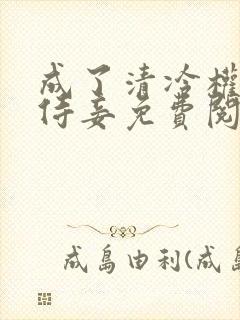 成了清冷權
侍妾免費閱
成島由利(成島